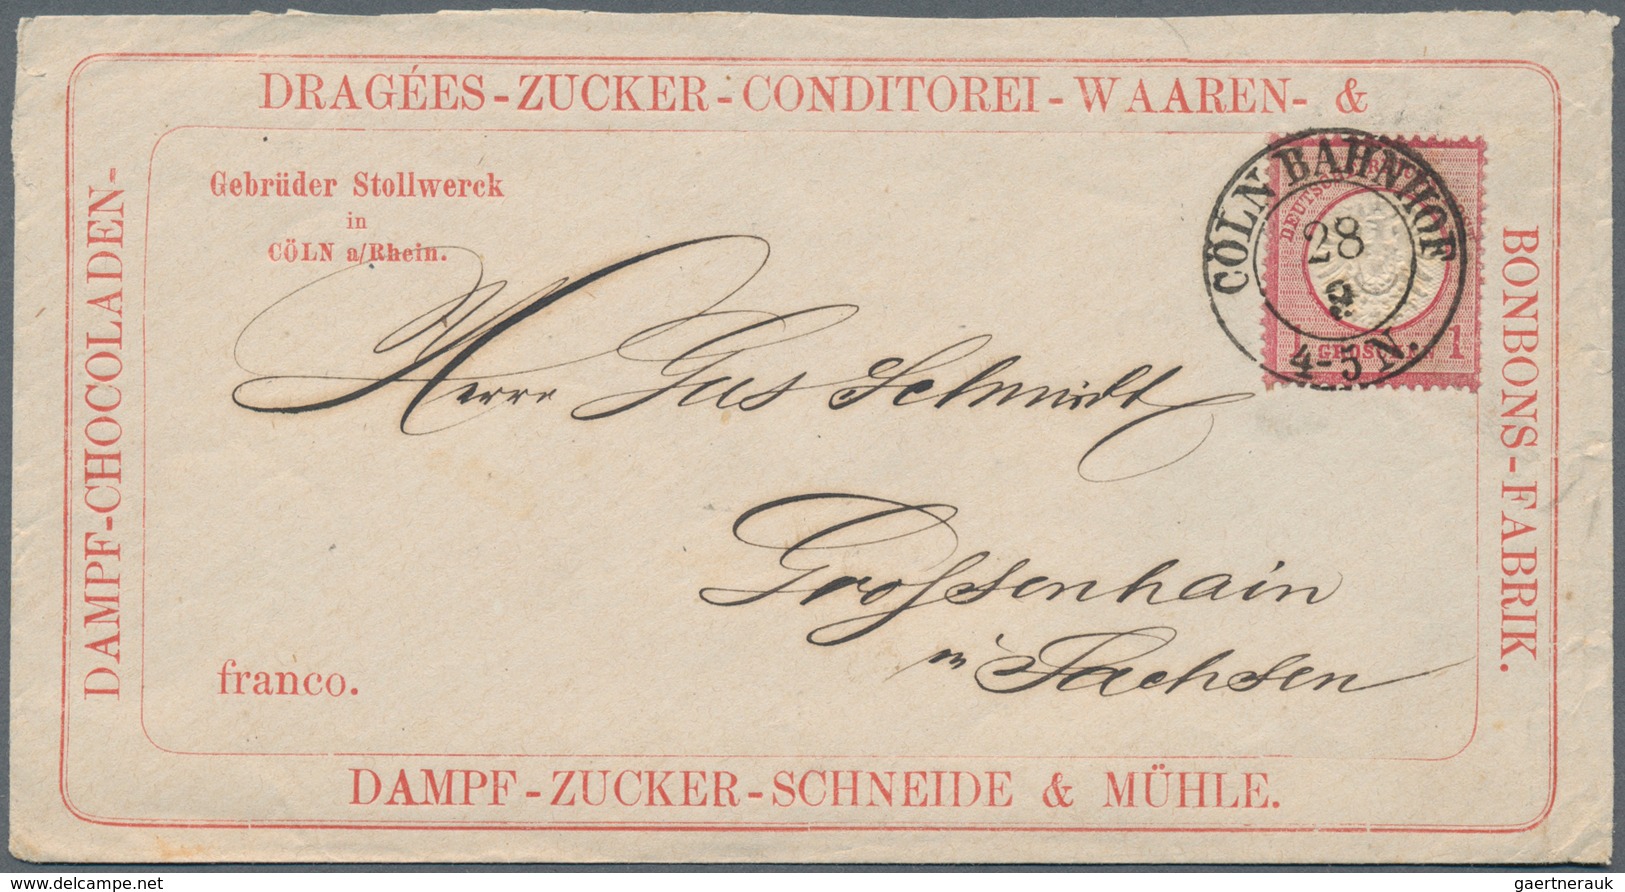 DRAGÉES-ZUCKER-CONDITOREI-WAAREN- &
DAMPF-CHOCOLADEN-
BONBONS-FABRIK.
Gebrüder Stollwerck
in
CÖLN a/Rhein.
CÖLN BAHNHOF
28
2
4-5 N.
1 GROSCHEN 1
Herrn Gus Schmidt
Grossenhain
in Sachsen
franco.
DAMPF-ZUCKER-SCHNEIDE & MÜHLE.
www.delcampe.net
gaertnerauk